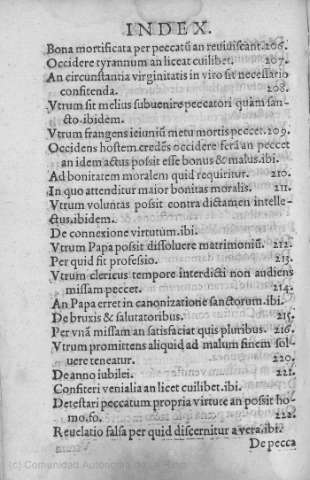 INDEX.
Bona mortificata per peccatũ an reviviscant. 206.
Occidere tyrannum an liceat cuilibet. 207.
An circunstantia virginitatis in viro sit necessario
confitenda. 208.
Vtrum sit melius subuenire peccatori quàm san-
cto. ibidem.
Vtrum frangens ieiuniũ metu mortis peccet. 209.
Occidens hostem credẽs occidere ferã an peccet
an idem actus possit esse bonus & malus. ibi.
Ad bonitatem moralem quid requiritur. 210.
In quo attenditur maior bonitas moralis. 211.
Vtrum voluntas possit contra dictamen intelle-
ctus. ibidem.
De connexione virtutum. ibi.
Vtrum Papa possit dissoluere matrimoniũ. 212.
Per quid fit professio. 213.
Vtrum clericus tempore interdicti non audiens
missam peccet. 214.
An Papa erret in canonizatione sanctorum. ibi.
De bruxis & salutatoribus. 215.
Per vnã missam an satisfaciat quis pluribus. 216.
Vtrum promittens aliquid ad malum finem sol-
uere teneatur. 220.
De anno iubilei. 221.
Confiteri venialia an licet cuilibet. ibi.
Detestari peccatum propria virtute an possit ho-
mo. fo. 222.
Reuelatio falsa per quid discernitur a vera. ibi.
De pecca
(c) Comunidad Autónoma de La Rioja